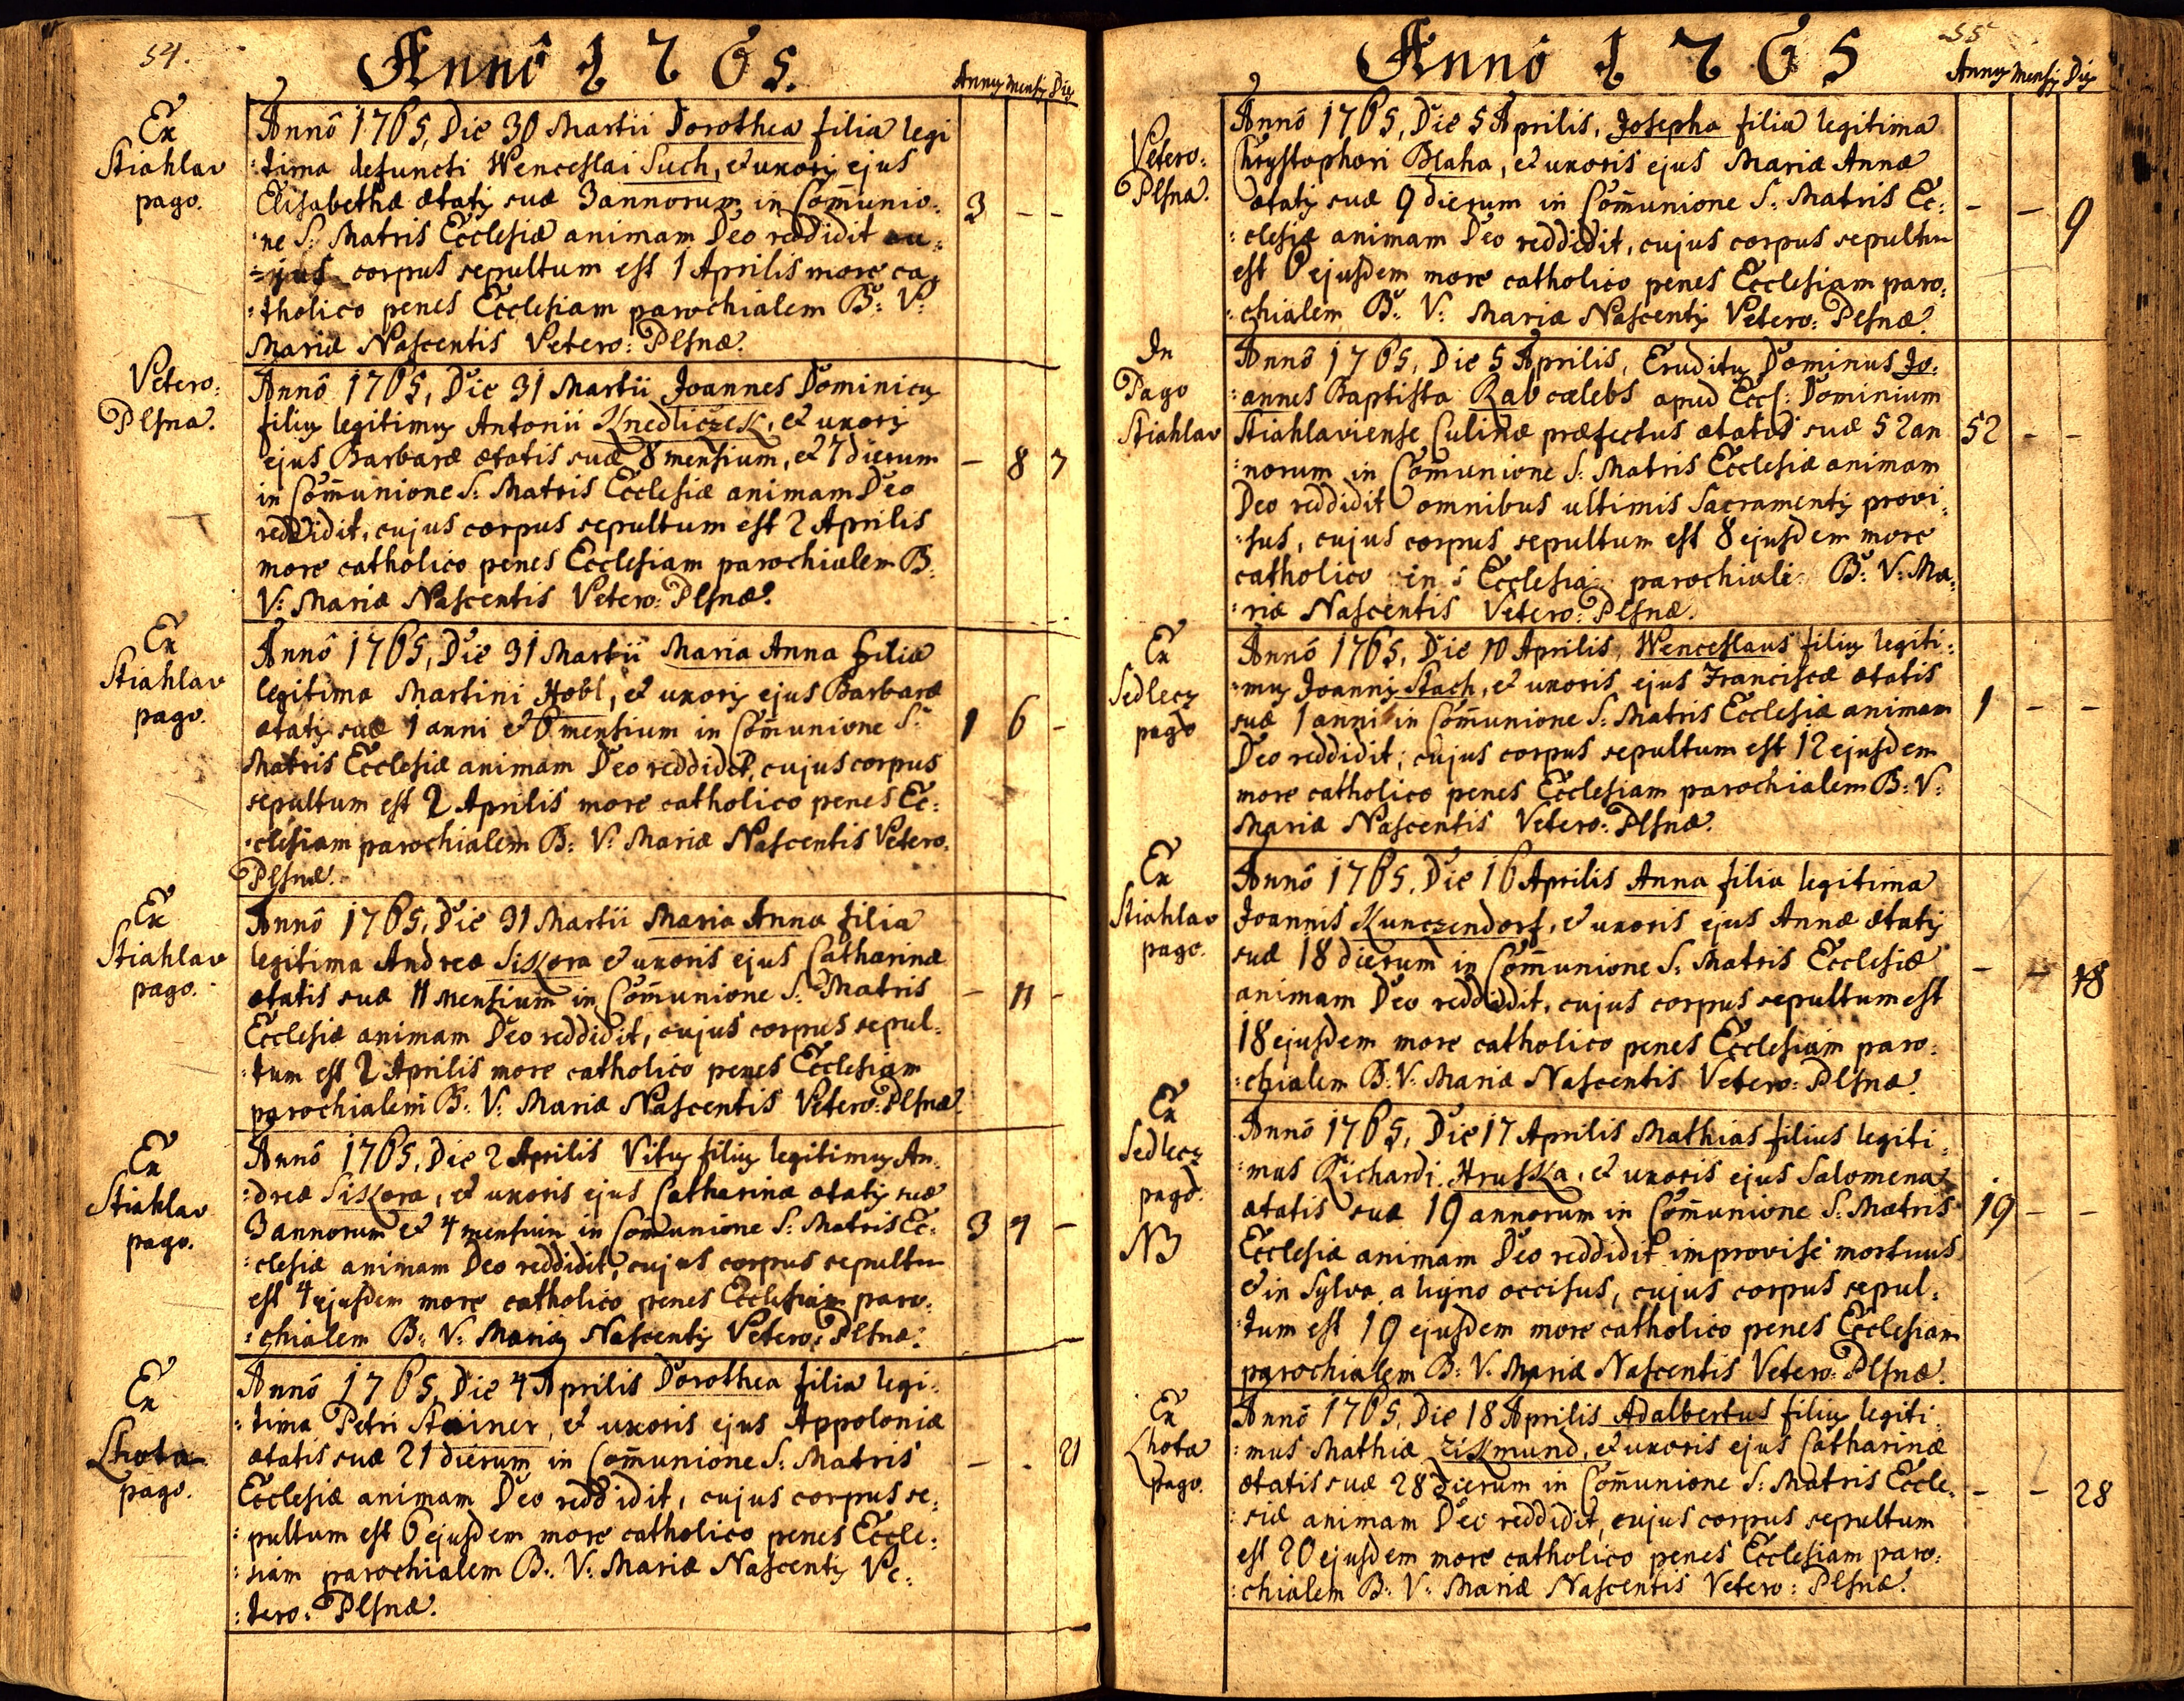 54.
Annô 1765.
Annꝰ Mensꝭ Dies
Ex
Stiahlav
pago.
Annô 1765, Die 30 Martii Dorothea filia legi
:tima defuncti Wenceslai Such, & uxoris ejus
Elisabethæ ætatis suæ 3 annorum in Com̄unio:
:ne S: Matris Ecclesiæ animam Deo reddidit cu:
:jus corpus sepultum est 1 Aprilis more ca:
:tholico penes Ecclesiam parochialem B: V:
Mariæ Nascentis Vetero: Plsnæ.
3 - -
Vetero:
Plsna.
Annô 1765, Die 31 Martii Joannes Dominicus
filius legitimus Antonii Knedliczek, & uxoris
ejus Barbaræ ætatis suæ 8 mensium, & 7 dierum
in Com̄unione S: Matris Ecclesiæ animam Deo
reddidit, cujus corpus sepultum est 2 Aprilis
more catholico penes Ecclesiam parochialem B:
V: Mariæ Nascentis Vetero: Plsnæ.
- 8 7
Ex
Stiahlav
pago.
Annô 1765, Die 31 Martii Maria Anna filia
legitima Martini Hobl, & uxoris ejus Barbaræ
ætatis suæ 1 anni & 6 mensium in Com̄unione S:
Matris Ecclesiæ animam Deo reddidit, cujus corpus
sepultum est 2 Aprilis more catholico penes Ec:
:clesiam parochialem B: V: Mariæ Nascentis Vetero:
Plsnæ.
1 6 -
Ex
Stiahlav
pago.
Annô 1765, Die 31 Martii Maria Anna filia
legitima Andreæ Siskora & uxoris ejus Catharinæ
ætatis suæ 11 Mensium in Com̄unione S: Matris
Ecclesiæ animam Deo reddidit, cujus corpus sepul:
:tum est 2 Aprilis more catholico penes Ecclesiam
parochialem B: V: Mariæ Nascentis Vetero: Plsnæ.
- 11 -
Ex
Stiahlav
pago.
Annô 1765, Die 2 Aprilis Vitus filius legitimus An:
:dreæ Siskora, & uxoris ejus Catharinæ ætatis suæ
3 annorum & 4 mensium in Com̄unione S: Matris Ec:
:clesiæ animam Deo reddidit, cujus corpus sepultum
est 4 ejusdem more catholico penes Ecclesiam paro:
:chialem B: V: Mariæ Nascentis Vetero: Plsnæ.
3 4 -
Ex
Lhota
pago.
Annô 1765, Die 4 Aprilis Dorothea filia legi:
:tima Petri Stainer, & uxoris ejus Appoloniæ
ætatis suæ 21 dierum in Com̄unione S: Matris
Ecclesiæ animam Deo reddidit, cujus corpus se:
:pultum est 6 ejusdem more catholico penes Eccle:
:siam parochialem B: V: Mariæ Nascentis Ve:
:tero: Plsnæ.
- - 21
55
Annô 1765
Annꝰ Mensꝭ Dies
Vetero:
Plsna.
Annô 1765, Die 5 Aprilis, Josepha filia legitima
Chrystophori Blaha, & uxoris ejus Mariæ Annæ
ætatis suæ 9 dierum in Com̄unione S: Matris Ec:
:clesiæ animam Deo reddidit, cujus corpus sepultum
est 6 ejusdem more catholico penes Ecclesiam paro:
:chialem B: V: Mariæ Nascentis Vetero: Plsnæ.
- - 9
In
Pago
Stiahlav
Annô 1765, Die 5 Aprilis, Eruditus Dominus Jo:
:annes Baptista Rab cælebs apud Excs: Dominium
Stiahlaviense Culinæ præfectus ætatis suæ 52 an
:norum in Com̄unione S: Matris Ecclesiæ animam
Deo reddidit omnibus ultimis Sacramentis provi:
:sus, cujus corpus sepultum est 8 ejusdem more
catholico in Ecclesia parochiali B: V: Ma:
:riæ Nascentis Vetero: Plsnæ.
52 - -
Ex
Sedlecz
pago
Annô 1765, Die 10 Aprilis, Wenceslaus filius legiti:
:mus Joannis Stach, & uxoris ejus Franciscæ ætatis
suæ 1 anni in Com̄unione S: Matris Ecclesiæ animam
Deo reddidit, cujus corpus sepultum est 12 ejusdem
more catholico penes Ecclesiam parochialem B: V:
Mariæ Nascentis Vetero: Plsnæ.
1 - -
Ex
Stiahlav
pago.
Annô 1765, Die 16 Aprilis Anna filia legitima
Joannis Kunczendorf, & uxoris ejus Annæ ætatis
suæ 18 dierum in Com̄unione S: Matris Ecclesiæ
animam Deo reddidit, cujus corpus sepultum est
18 ejusdem more catholico penes Ecclesiam paro:
:chialem B: V: Mariæ Nascentis Vetero: Plsnæ.
- - 18
Ex
Sedlecz
pago.
NB
Annô 1765, Die 17 Aprilis Mathias filius legiti:
:mus Richardi Hruska, & uxoris ejus Salomenæ
ætatis suæ 19 annorum in Com̄unione S: Matris
Ecclesiæ animam Deo reddidit improvise mortuus
& in Sylva a ligno occisus, cujus corpus sepul:
:tum est 19 ejusdem more catholico penes Ecclesiam
parochialem B: V: Mariæ Nascentis Vetero: Plsnæ.
19 - -
Ex
Lhota
pago.
Annô 1765, Die 18 Aprilis Adalbertus filius legiti:
:mus Mathiæ Zikmund, & uxoris ejus Catharinæ
ætatis suæ 28 dierum in Com̄unione S: Matris Eccle:
:siæ animam Deo reddidit, cujus corpus sepultum
est 20 ejusdem more catholico penes Ecclesiam paro:
:chialem B: V: Mariæ Nascentis Vetero: Plsnæ.
- - 28